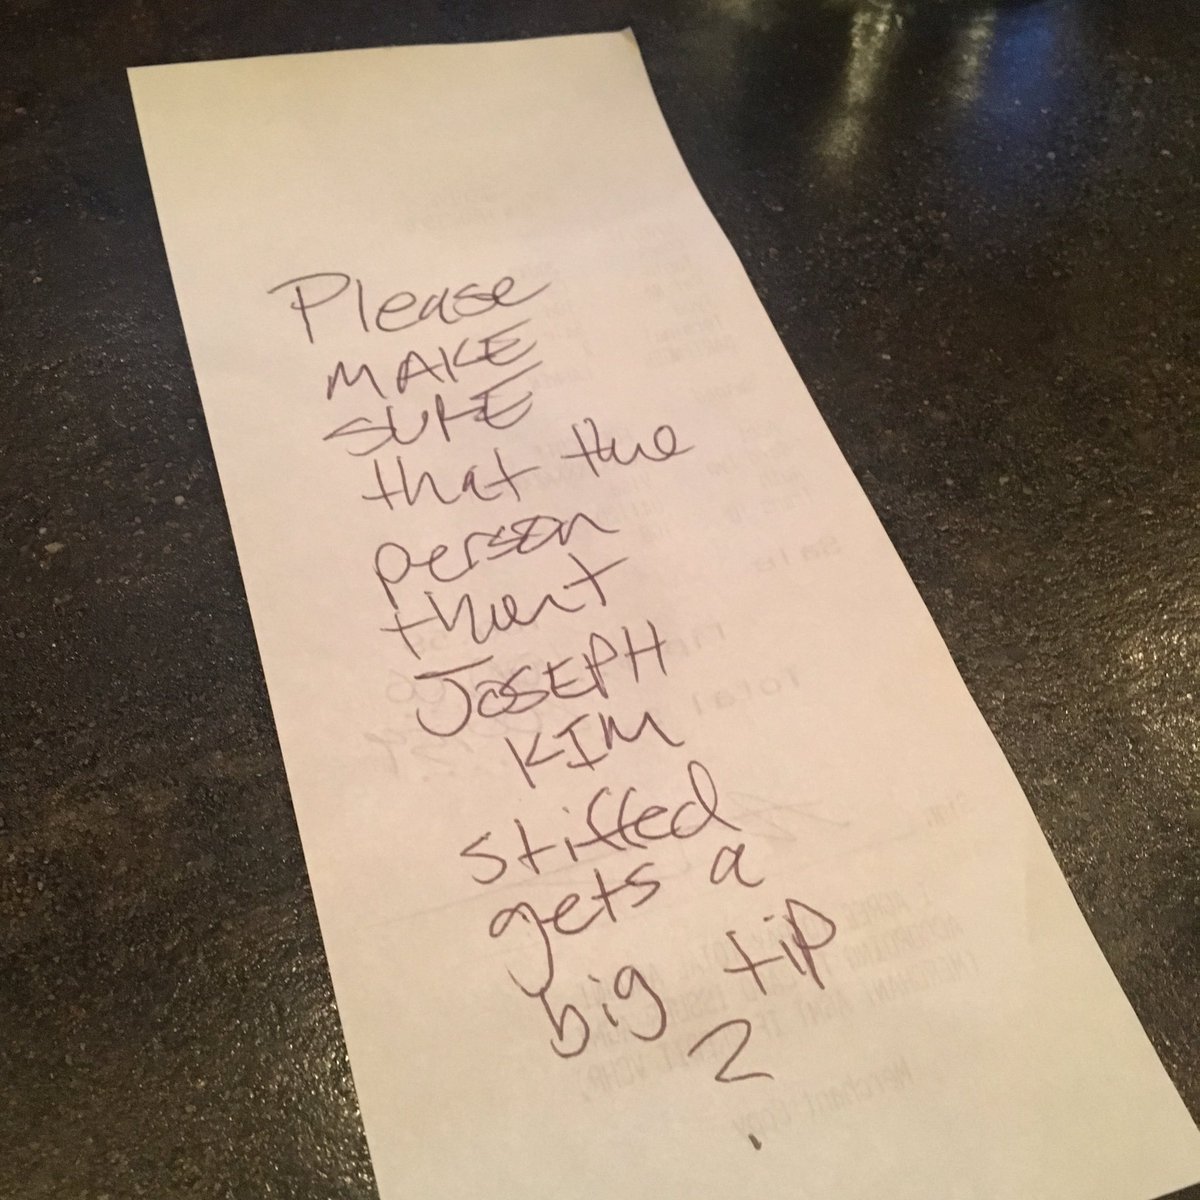 Please
MAKE
SURE
that the
person
that
JOSEPH
KIM
stiffed
gets a
big tip
2